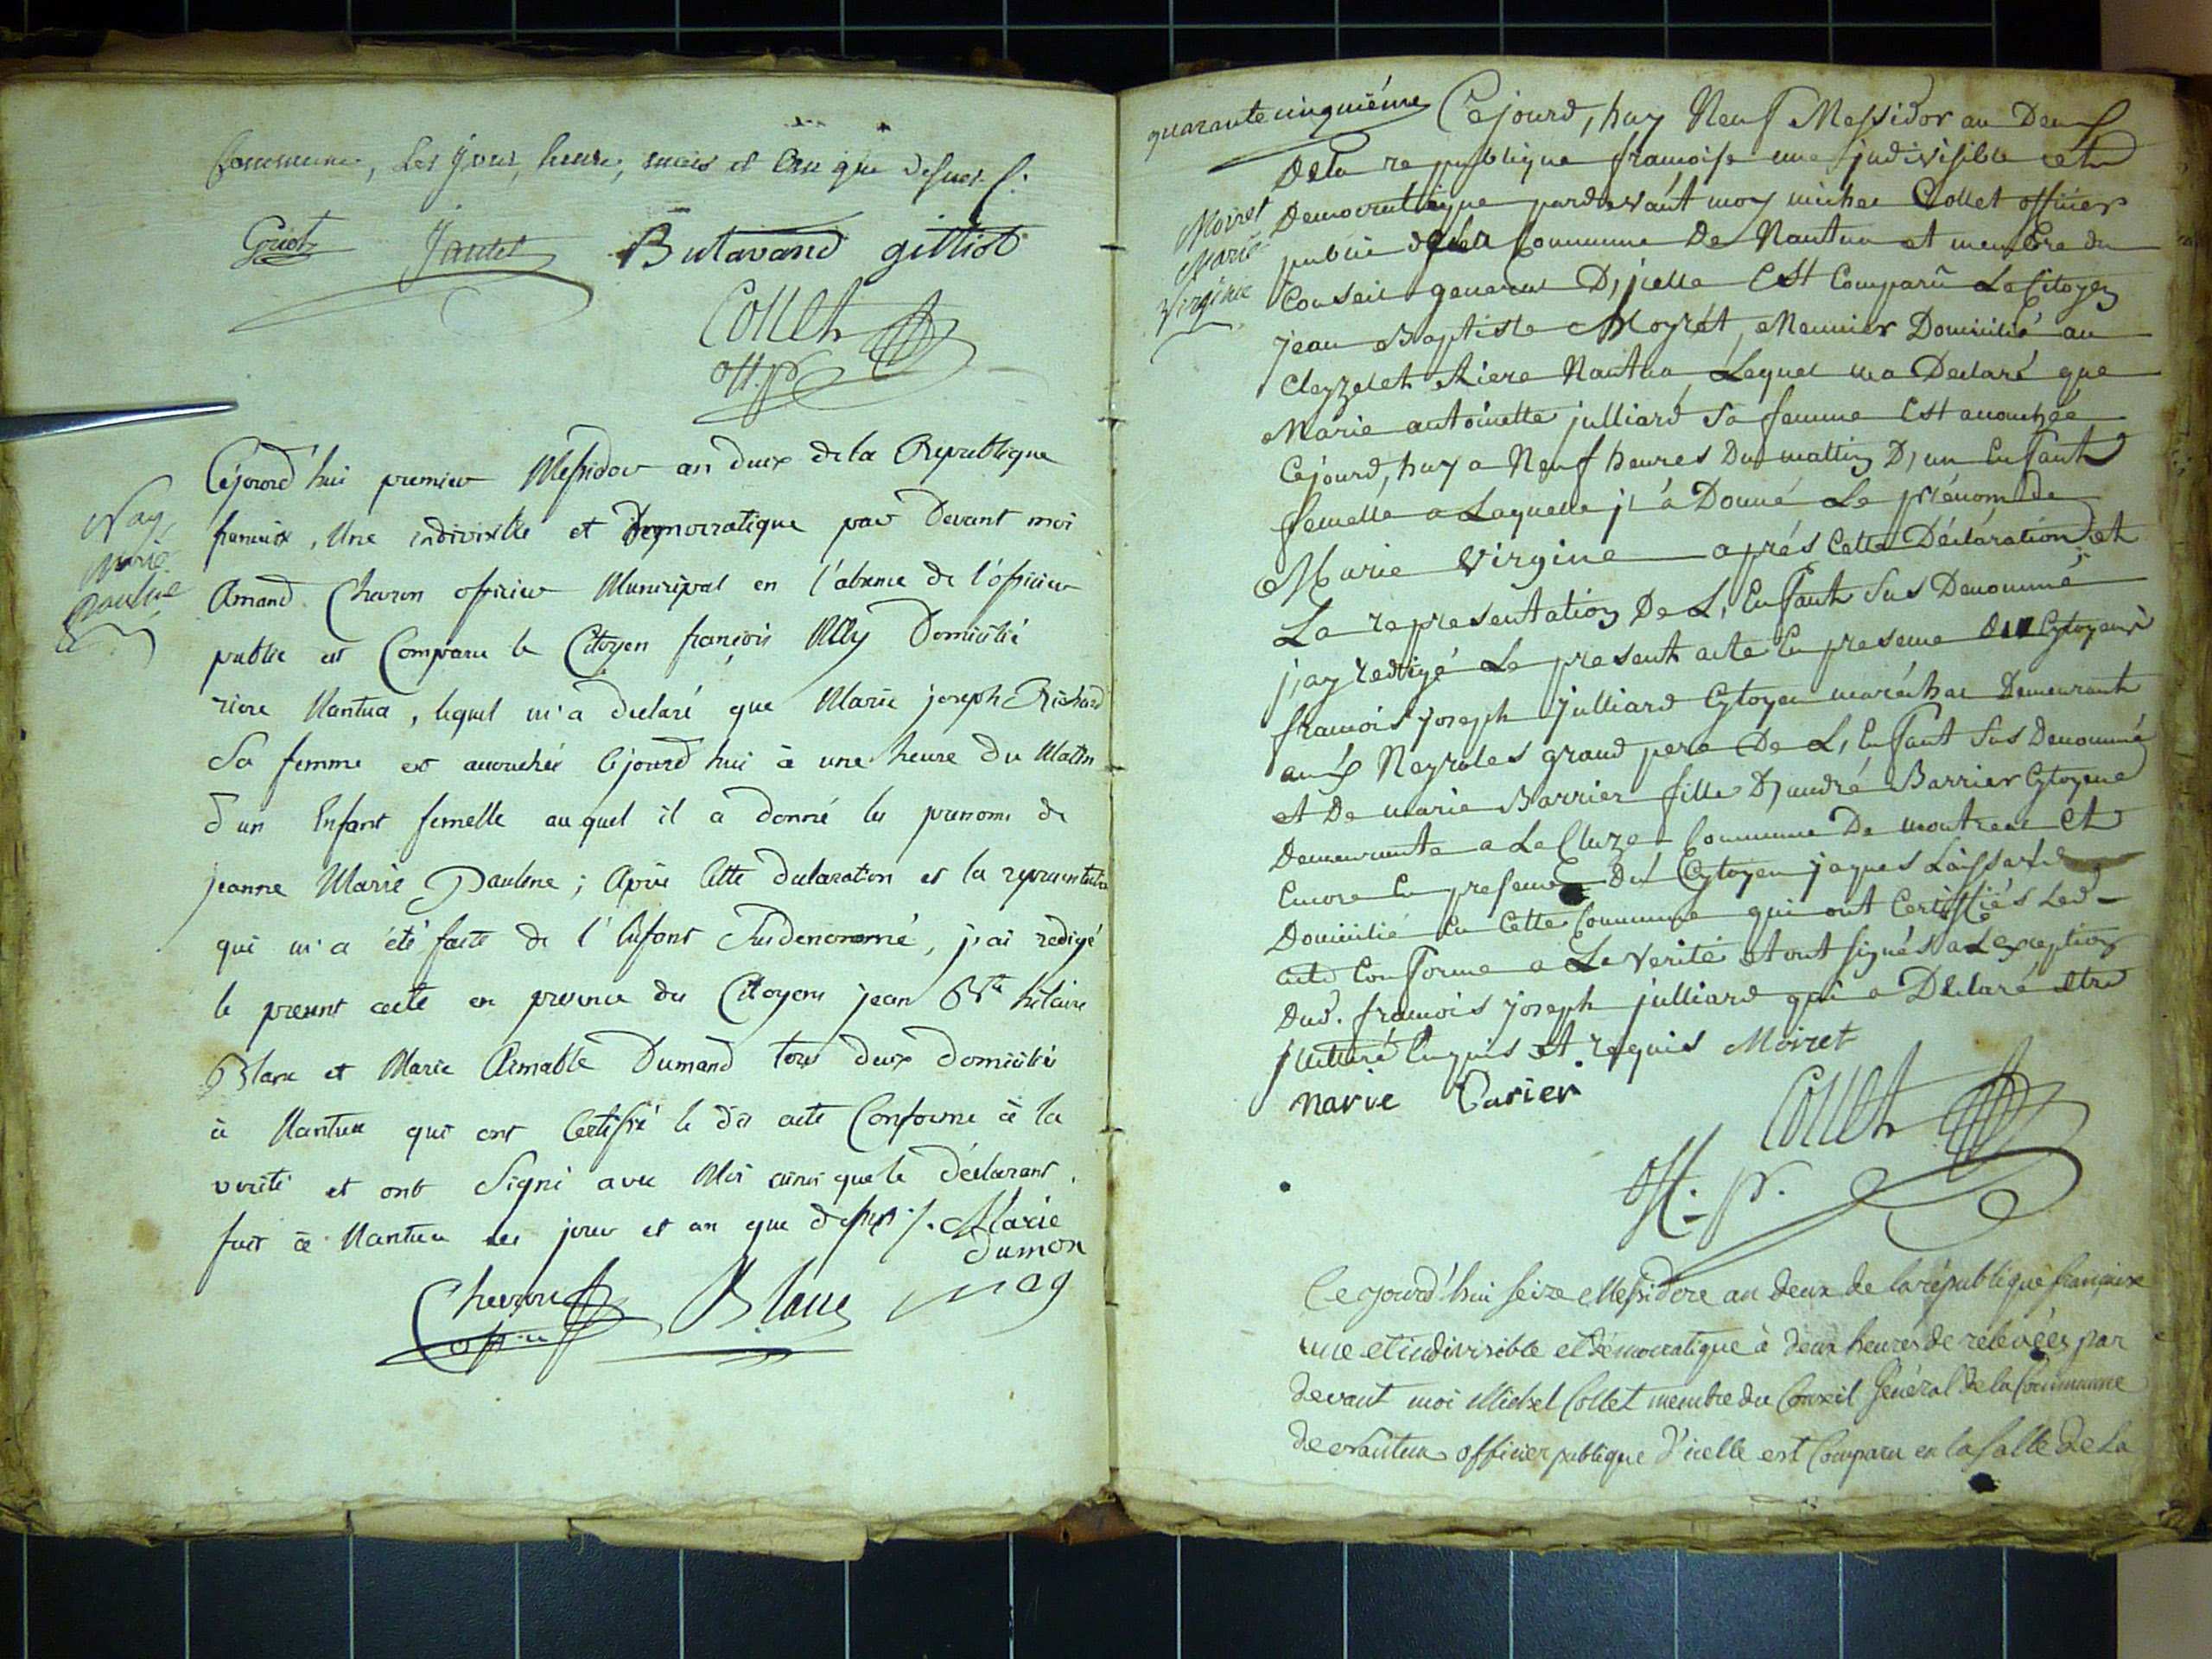 Commune, Les Jour, heure, mois et an que dessus
Jantet Butavand gilliot
Collet
off. p.
Cejourd'hui premier Messidor an deux de la Republique
francoise, Une indivisible et Democratique par Devant moi
Nay
marie
Pauline
Amand Charon officier Municipal en l'absence de l'officier
public est Comparu le Citoyen françois Domicilié
riere Nantua, lequel m'a declaré que Marie joseph Richard
Sa femme est accouchée Cejourd'hui à une heure Du Matin
d'un Enfant femelle auquel il a donné les prenoms de
jeanne Marie Pauline; Après Cette declaration et la representation
qui m'a été faite de l'Enfant Susdenommé, j'ai redigé
le present acte en presence des Citoyens jean Bte hilaire
Blanc et Marie Aimable Dumand tous deux domiciliés
à Nantua qui ont Certifié le dit acte Conforme à la
verité et ont Signé avec Moi ainsi que le déclarant.
fait à Nantua les jour et an que dessus /. Marie
dumon
Blanc nay
quarante cinquiéme Cejourd, huy Neuf Messidor an Deux
Dela republique framoise une jndivisible et
Moiret
Marie
Virginie
Democratique pardevant moy michel Collet officier
public dela Commune De Nantua et membre du
Conseil general D, jcelle Est Comparû Le Citoyen
jean Baptiste Moyrét, Meunier Domicilié au
Cleyzelet Riere Nantua, Lequel ma Declaré que
Marie antoinette julliard Sa femme Est accouchée
Cejourd, huy a Neuf heures Du mattin D, un Enfant
femelle a Laquelle jl à Donné Le prénom de
Marie Virgine aprés Cette Déclaration et
La representation De L, Enfant Sus Denommé
j, ay redigé Le present acte En presence Citoyens
framois joseph julliard Cytoyen maréchal Demeurant
aux Neyroles grand pere De L, Enfant Sus Denommé
et De marie Barrier fille D, andré Barrier Cytoyene
Demeurante a La Cluze Commune De montreal Et
Encore En presence Du Cytoyen jaques
Domicilié En Cette Commune qui ont Certiffiés Led
acte Conforme a La Verité et ont signés a Lexception
Dud. framois joseph julliard qui a Déclaré etre
jlliteré Enquis et requis Moiret
marie Barier
Collet
Off. p.
Cejourd'hui seize Messidore an deux de la république française
une et indivisible et démocratique à deux heures de relevées par
devant moi Michel Collet membre du Conseil Général de la Commune
de Nantua officier publique d'icelle est Comparu en la salle de La